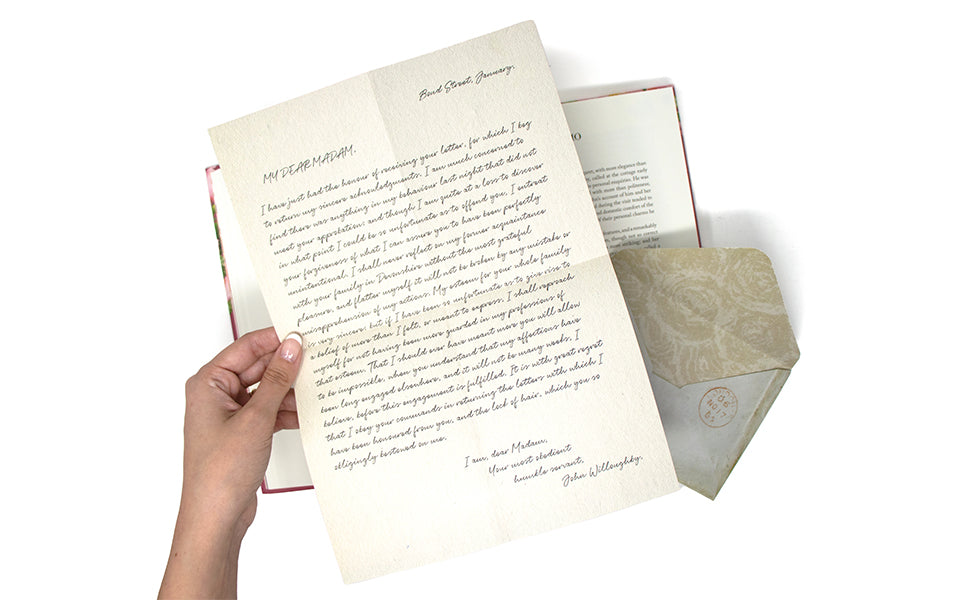 Bond Street, January.
MY DEAR MADAM,
I have just had the honour of receiving your letter, for which I beg
to return my sincere acknowledgments. I am much concerned to
find there was anything in my behaviour last night that did not
meet your approbation; and though I am quite at a loss to discover
in what point I could be so unfortunate as to offend you, I entreat
your forgiveness of what I can assure you to have been perfectly
unintentional. I shall never reflect on my former acquaintance
with your family in Devonshire without the most grateful
pleasure, and flatter myself it will not be broken by any mistake or
misapprehension of my actions. My esteem for your whole family
is very sincere; but if I have been so unfortunate as to give rise to
a belief of more than I felt, or meant to express, I shall reproach
myself for not having been more guarded in my professions of
that esteem. That I should ever have meant more you will allow
to be impossible, when you understand that my affections have
been long engaged elsewhere, and it will not be many weeks, I
believe, before this engagement is fulfilled. It is with great regret
that I obey your commands in returning the letters with which I
have been honoured from you, and the lock of hair, which you so
obligingly bestowed on me.
I am, dear Madam,
Your most obedient
humble servant,
John Willoughby.
MO
, with more elegance than
called at the cottage early
personal enquiries. He was
with more than politeness,
's account of him and her
during the visit tended to
and domestic comfort of the
their personal charms he
features, and a remarkably
though not so correct
more striking; and her
called a